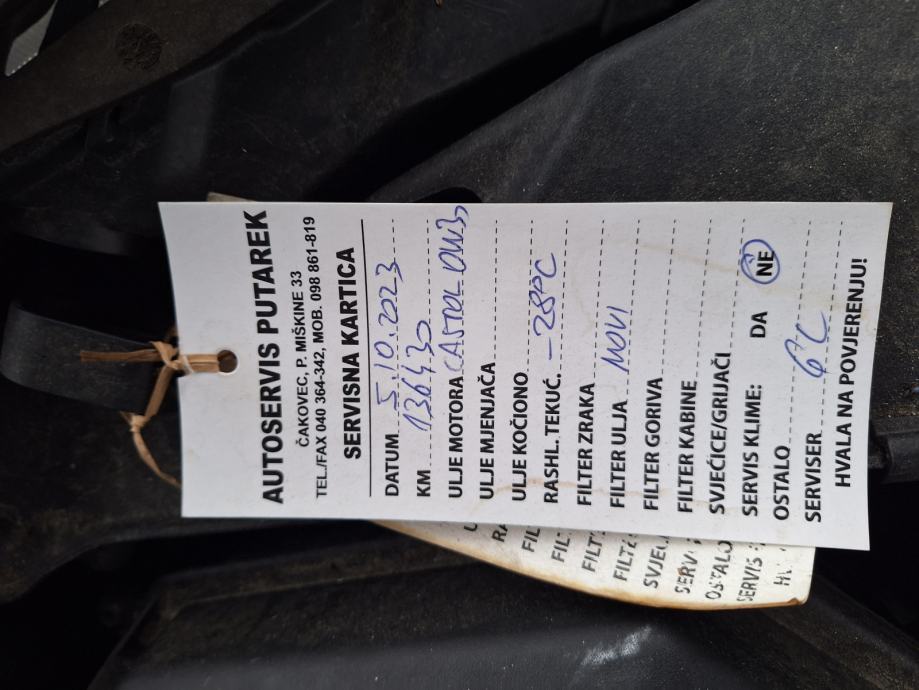 AUTOSERVIS PUTAREK
ČAKOVEC, P. MIŠKINE 33
TEL./FAX 040 364-342, MOB. 098 861-819
SERVISNA KARTICA
DATUM 5.10.2023
KM 13643
ULJE MOTORA CASTROL 0W3
ULJE MJENJAČA
ULJE KOČIONO
RASHL. TEKUĆ. -28°C
FILTER ZRAKA
FILTER ULJA NOVI
FILTER GORIVA
FILTER KABINE
SVJEĆICE/GRIJAČI
SERVIS KLIME: DA NE
OSTALO
SERVISER
HVALA NA POVJERENJU!
U
RA
FIL
FIL
FILT
FILT
SVJE
SERV
OSTALO
SERVIS